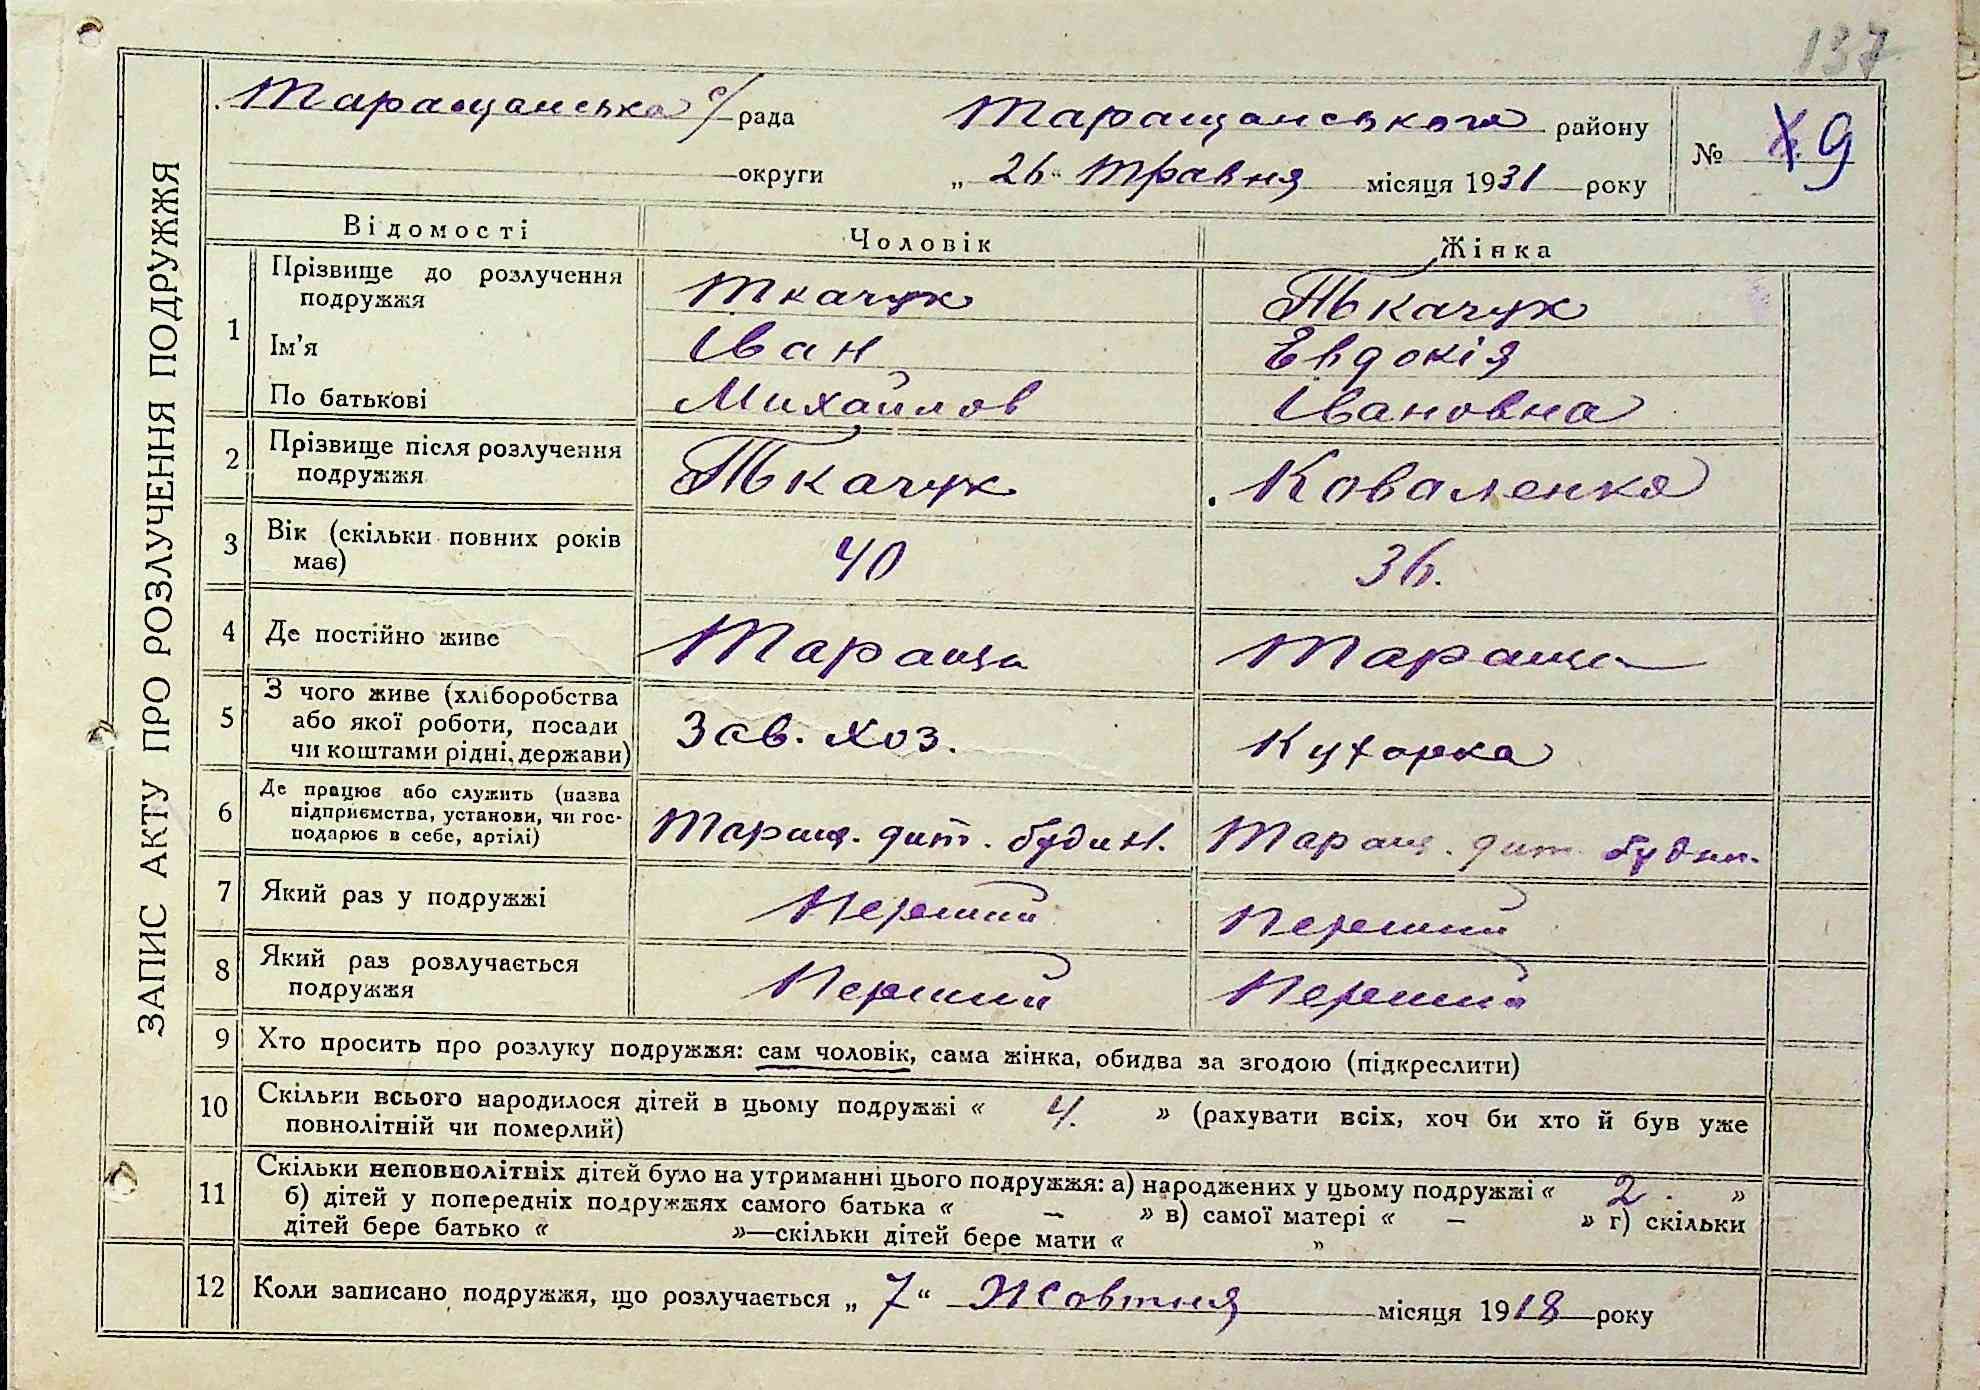 137
ЗАПИС АКТУ ПРО РОЗЛУЧЕННЯ ПОДРУЖЖЯ
Таращанська с/рада Таращанського району
№ 9
округи „26“ Травня місяця 1931 року
Відомості Чоловік Жінка
1 Прізвище до розлучення подружжя Ткачук Ткачук
Ім'я Іван Евдокія
По батькові Михайлов Івановна
2 Прізвище після розлучення подружжя Ткачук Коваленко
3 Вік (скільки повних років має) 40 36.
4 Де постійно живе Тараща Тараща
5 З чого живе (хліборобства або якої роботи, посади чи коштами рідні, держави) Зав. хоз. Кухорка
6 Де працює або служить (назва підприємства, установи, чи господарює в себе, артілі) Таращ. дит. будин. Таращ. дит. будин.
7 Який раз у подружжі Перший Перший
8 Який раз розлучається подружжя Перший Перший
9 Хто просить про розлуку подружжя: сам чоловік, сама жінка, обидва за згодою (підкреслити)
10 Скільки всього народилося дітей в цьому подружжі « 4. » (рахувати всіх, хоч би хто й був уже
повнолітній чи померлий)
11 Скільки неповнолітніх дітей було на утриманні цього подружжя: а) народжених у цьому подружжі « 2. »
б) дітей у попередніх подружжях самого батька « – » в) самої матері « – » г) скільки
дітей бере батько « »—скільки дітей бере мати « »
12 Коли записано подружжя, що розлучається „7“ Жовтня місяця 1918 року